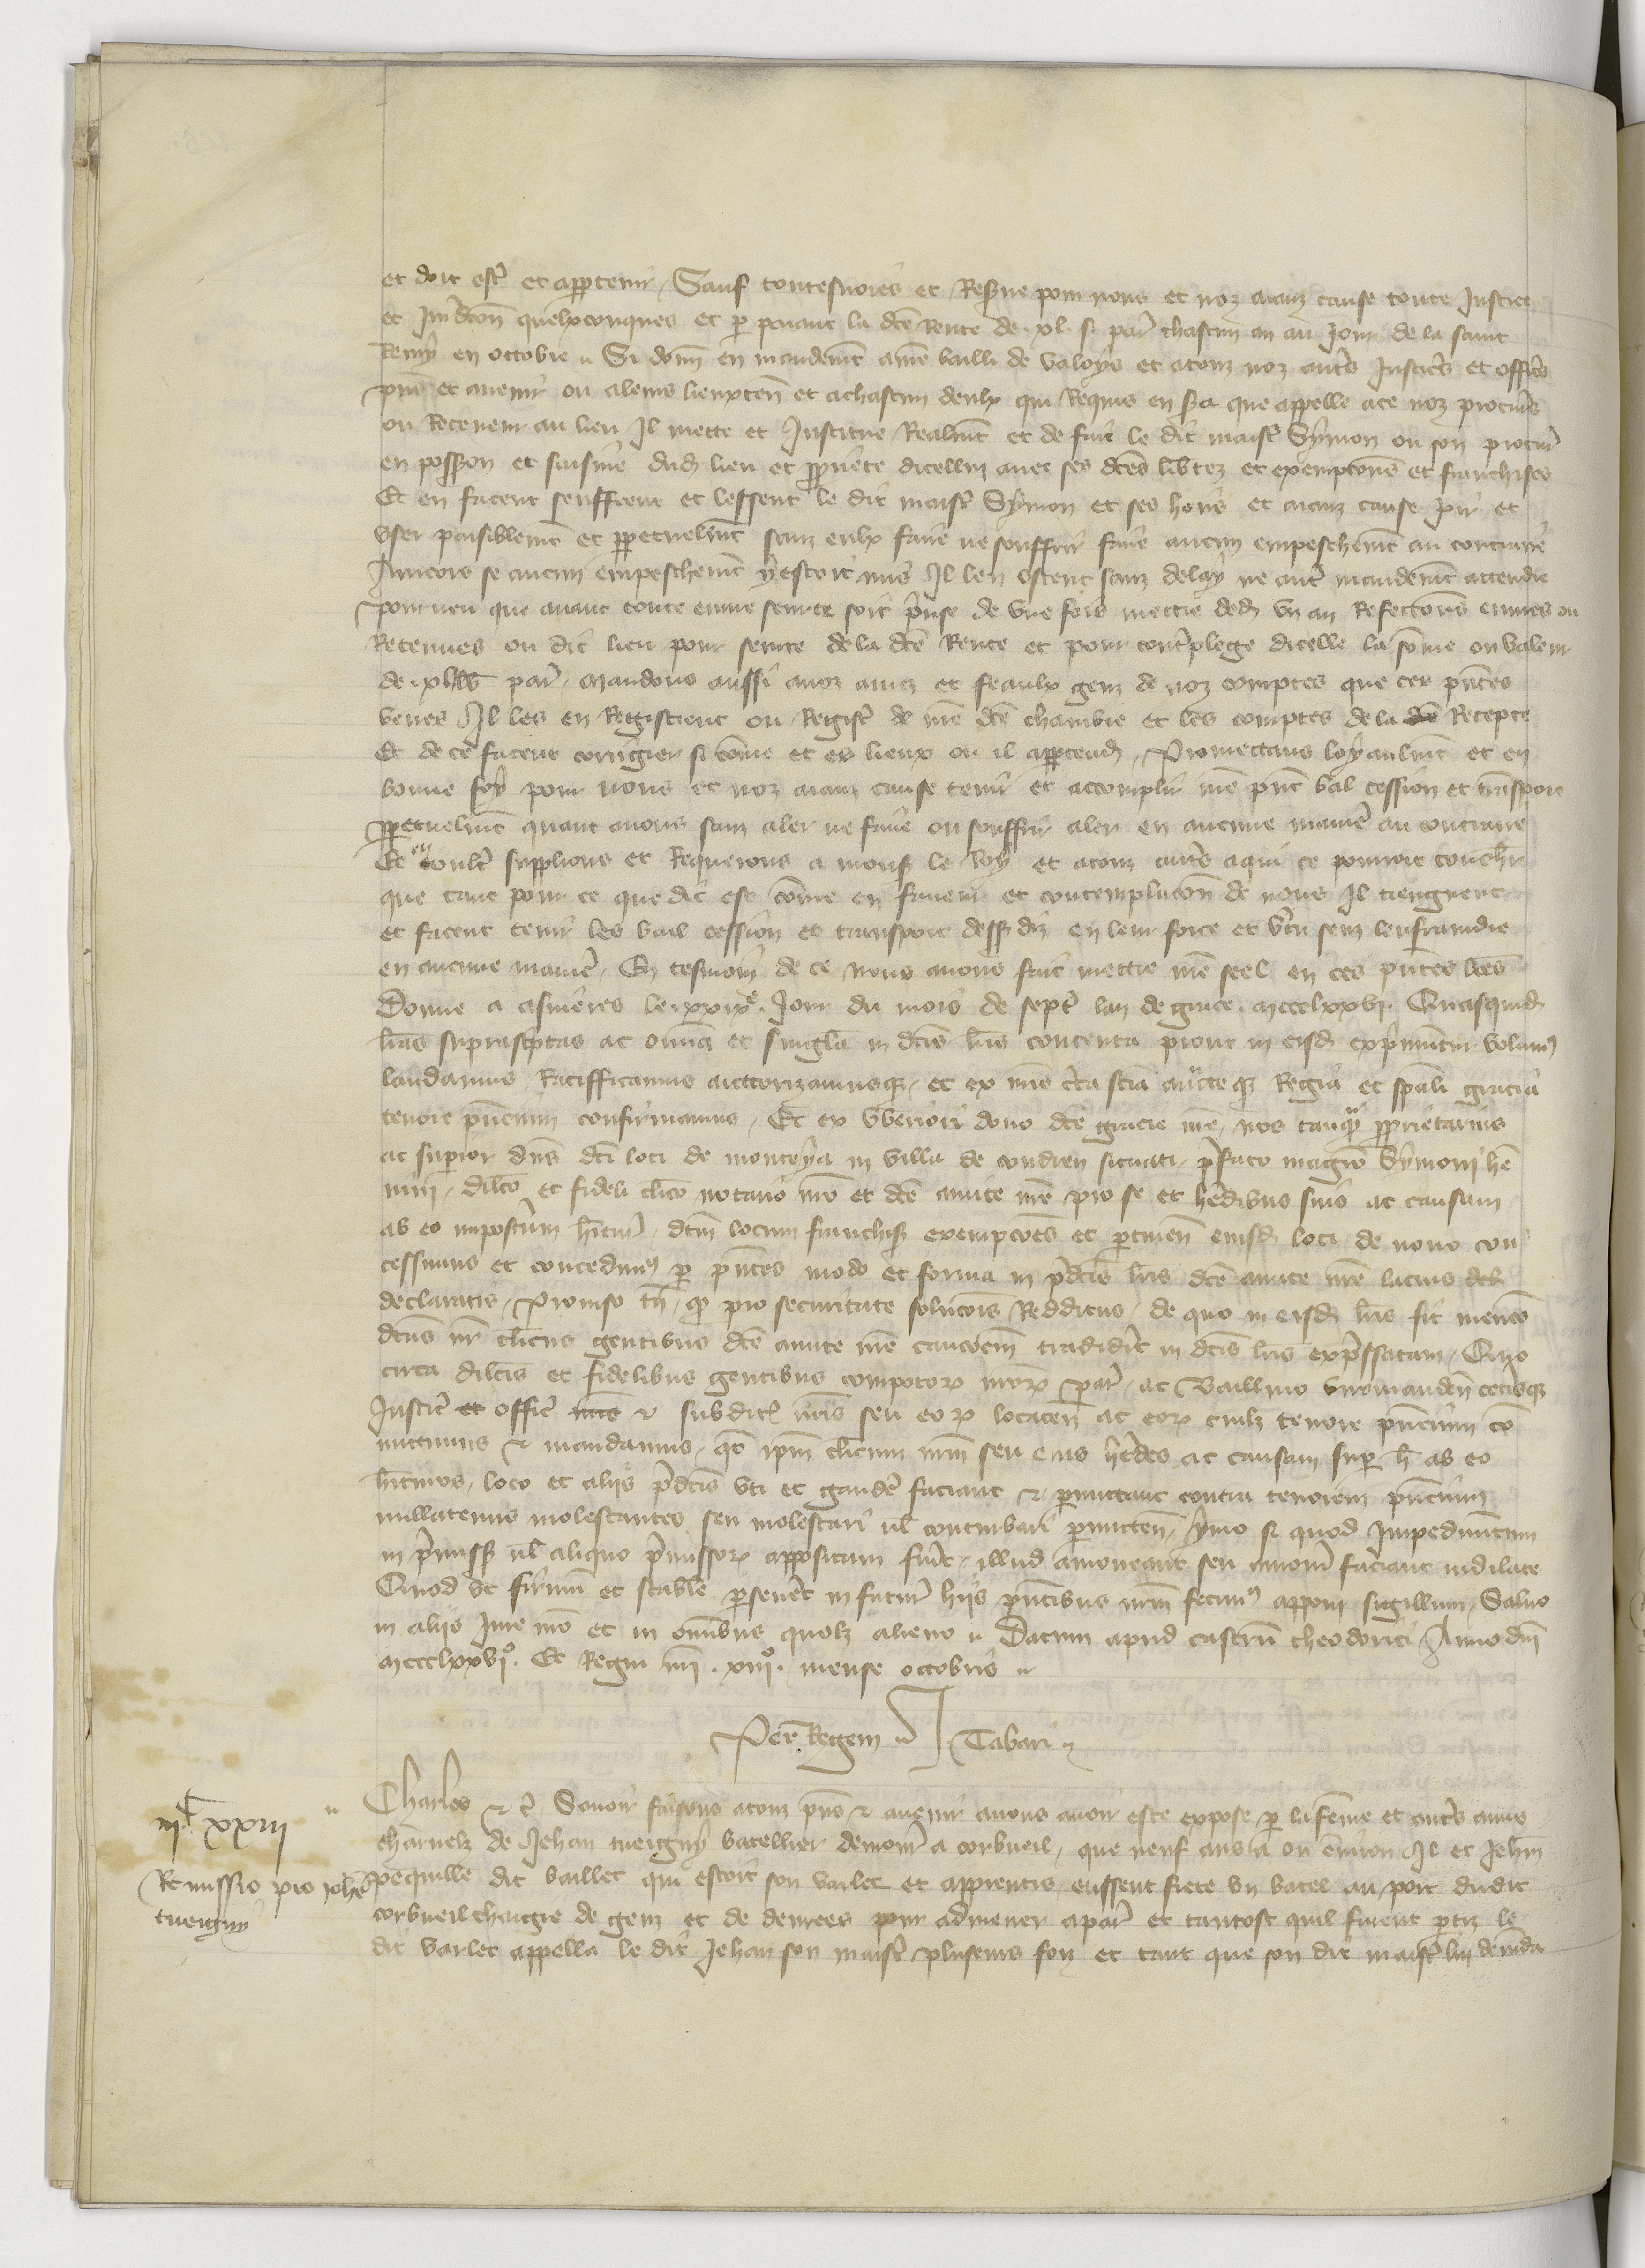 et doit estre et appartenir, Sauf toutesvoies et Reserve pour nous et noz aianz cause toute Justice
et Juridicon quelxconques et par paiant la dce Rente de .xl. s. par chascun an au Jour de la saint
Remy en octobre Si donn en mandement a nre bailli de Valoys et a touz noz autres Justiciers et officiers
pns et avenir ou a leurs lieuxten et a chascun deulx qui Requis en sera que appelle a ce noz procureurs
ou Receveur au lieu Il mette et Institue Realment et de fait le dit maistre Symon ou son procureur
en possession et saisine dud lieu et propriete dicellui avec ses dces libtez et exempcons et franchises
Et en facent seuffrent et lessent le dit maistre Symon et ses hoirs et aianz cause joir et
user paisiblement et perpetuelment sanz eulx faire ne souffrir faire aucun empeschement au contraire
Aincois se aucun empeschement y estoit mis Il len ostent sanz delay ne autre mandement attendre
pourveu que avant toute euvre seurte soit prinse de une fois mettre dedens un an Refections euvres ou
Retenues ou dit lieu pour seurte de la dce Rente et pour contreplege dicelle la somme ou valeur
de .xl. par, Mandons aussi a noz amez et feaulx genz de noz comptes que ces pntes
veues Il les enRegistrent ou Registre de nre dce chambre et les comptes de la Recepte
Et de ce facent corrigier si comme et es lieux ou il appartendra, Promettans loyaulment et en
bonne foy pour nous et noz aianz cause tenir et accomplir nre pnt bail cession et transport
perpetuelment quant a nous sanz aler ne faire ou souffrir aler en aucune maniere au contraire
Et en oultre supplions et Requerons a mons le Roy et a touz autres a qui ce pourroit touchier
que tant pour ce que dit est comme en faveur et contemplacon de nous Il tiengnent
et facent tenir les bail cession et transport dess diz en leur force et vertu sanz lenfraindre
en aucune maniere, En tesmoin de ce nous avons fait mettre nre seel en ces pntes lres
Donne a asnieres le .xxix.e Jour du mois de sept lan de grace .mccclxxvi. Quasquid
lras suprascptas ac omnia et singula in dcis lris contenta prout in eisd exprimuntur volum
laudamus, Ratifficamus auctorizamusque, et ex nra certa scia auctteque Regia et spali gracia
tenore pncium confirmamus, Et ex uberiori dono dce gracie nre, nos tanquam proprietarius
ac superior dns dci loci de monteya in villa de condren situati, prefato magro Symoni he
nini, dilco et fideli clico notario nro et dce amite nre pro se et heredibus suis ac causam
ab eo imposterum hituris, dcm locum franchis exempcoes et pertinen eiusd loci de novo con
cessimus et concedimus per pntes modo et forma in predcis lris dce amite nre lacius
declaratis, Proviso tn, quod pro securitate solucois Redditus, de quo in eisd lris fit mencio
dcus nr clicus gentibus dce amite nre caucoem tradiderit in dcis lris expressatam, Quo
circa dilcis et fidelibus gentibus compotorum nrorum par, ac Baillivo viromanden ceterisque
Justic offic & subdit nris seu eorum locaten ac eorum cuilz tenore pncium co
mittimus & mandamus, qtus ipm clicum nrm seu eius heredes ac causam super h ab eo
hituros, loco et aliis predcis uti et gaudere faciant & permittant contra tenorem pncium
nullatenus molestantes seu molestari vel conturbari permitten, ymo si quod Impedimentum
in premiss vel aliquo premissorum appositum fuerit, illud amoveant seu amoveri faciant indilate
Quod ut firmum et stabile perseveret in futurum hiis pntibus nrm fecimus apponi sigillum, Salvo
in aliis Jure nro et in omnibus quolz alieno Datum apud castrum theodorici Anno dni
mccclxxvi.o Et Regni nri .xiii.o mense octobris
Per Regem Tabari
iii.c xxiii
Charles & c, Savoir faisons a touz pns & avenir a nous avoir este expose par la femme et autres amis
charnelz de Jehan tueigny batellier demourant a corbueil, que neuf ans a ou environ Il et Jehan
Remissio pro johe
tueigny
pequille dit vaillet qui estoit son varlet et apprentis, eussent frete un batel au port dudit
corbueil chargie de genz et de denrees pour admener a par et tantost quil furent partiz le
dit varlet appella le dit Jehan son maistre plusieurs foiz et tant que son dit maistre lui demanda